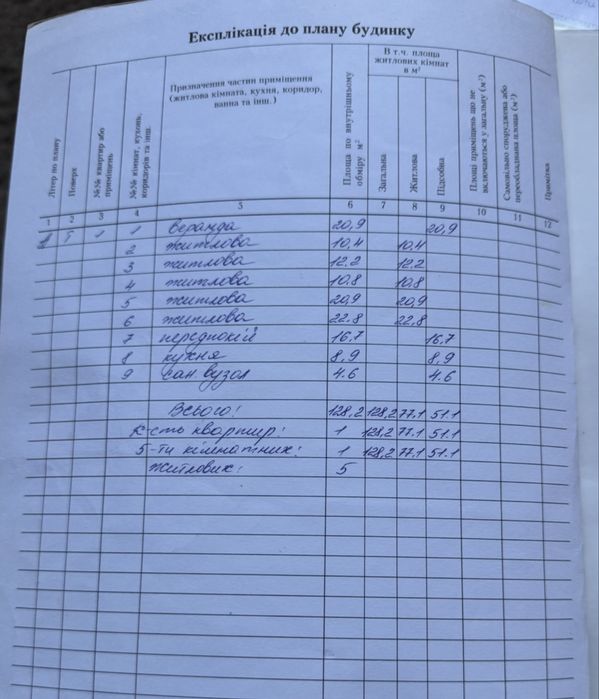 Експлікація до плану будинку
Літер по плану
Поверх
№№ квартир або приміщень
№№ кімнат, кухонь, коридорів та інш.
Призначення частин приміщення (житлова кімната, кухня, коридор, ванна та інш.)
Площа по внутрішньому обміру м²
В т.ч. площа житлових кімнат в м²
Загальна
Житлова
Підсобна
Площі приміщень що не включаються у загальну (м²)
Самовільно споруджена або переобладнана площа (м²)
Примітка
1 2 3 4 5 6 7 8 9 10 11 12
І 1 1 веранда 20,9 20,9
2 житлова 10,4 10,4
3 житлова 12.2 12.2
4 житлова 10.8 10.8
5 житлова 20,9 20,9
6 житлова 22.8 22.8
7 передпокій 16,7 16,7
8 кухня 8,9 8,9
9 сан вузол 4.6 4.6
Всього: 128,2 128,2 77.1 51.1
к-сть квартир: 1 128,2 77.1 51.1
5-ти кімнатних: 1 128,2 77.1 51.1
житлових: 5